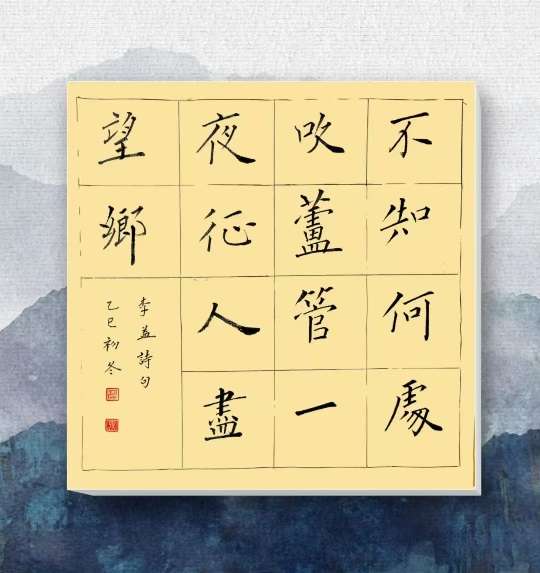 不知何處
吹蘆管一
夜征人盡
望鄉
李益詩句
乙巳初冬